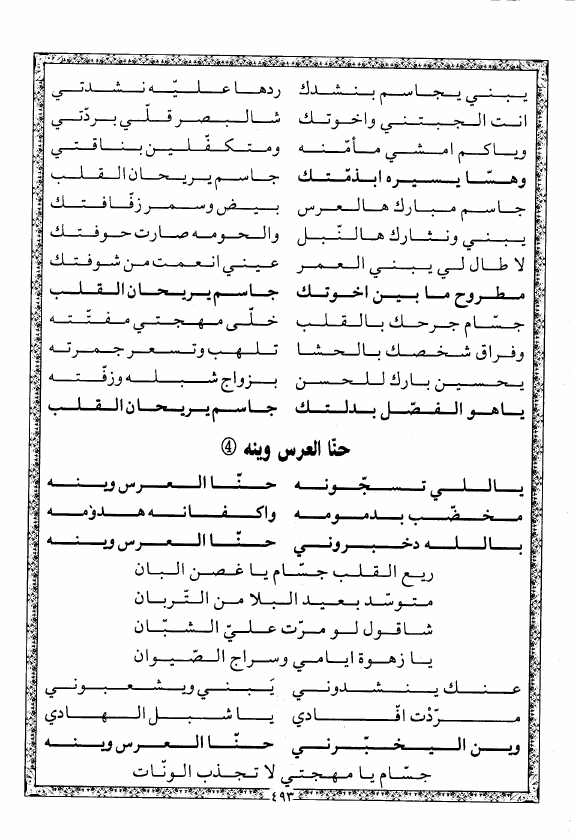 يبني يجاسم بنشدك ردها عليّه نشدتي
انت الجبتني واخوتك شالبصر قلّي بردّتي
وياكم امشي مأمّنه ومتكفّلين بناقتي
وهسّا يسيره ابذمّتك جاسم يريحان القلب
جاسم مبارك هالعرس بيض وسمر زفّافتك
يبني ونثارك هالنّبل والحومه صارت حوفتك
لا طال لي يبني العمر عيني انعمت من شوفتك
مطروح ما بين اخوتك جاسم يريحان القلب
جسّام جرحك بالقلب خلّى مهجتي مفتّته
وفراق شخصك بالحشا تلهب وتسعر جمرته
يحسين بارك للحسن بزواج شبله وزفّته
ياهو الفصّل بدلتك جاسم يريحان القلب
حنّا العرس وينه ④
ياللي تسجّونه حنّا العرس وينه
مخضّب بدمومه واكفانه هدومه
بالله دخبروني حنّا العرس وينه
ريع القلب جسّام يا غصن البان
متوسّد بعيد البلا من التّربان
شاقول لو مرّت عليّ الشبّان
يا زهوة ايامي وسراج الصّيوان
عنك ينشدوني يَبني ويشعبوني
مرّدْت افّادي يا شبل الهادي
وين اليخبّرني حنّا العرس وينه
جسّام يا مهجتي لا تجذب الونّات
٤٩٣